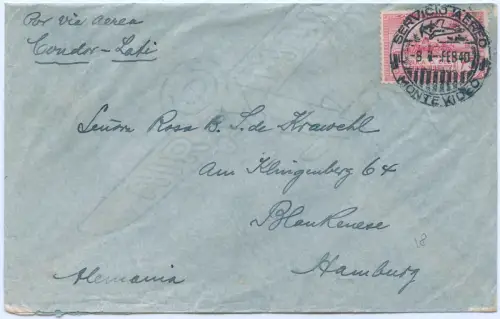 Por vie aerea
Condor-Lati
SERVICIO AEREO
8 FEB 40
MONTEVIDEO
Señora Rosa B. S. de Krawehl
Am Klingenberg 64
Blankenese
Hamburg
Alemania
18